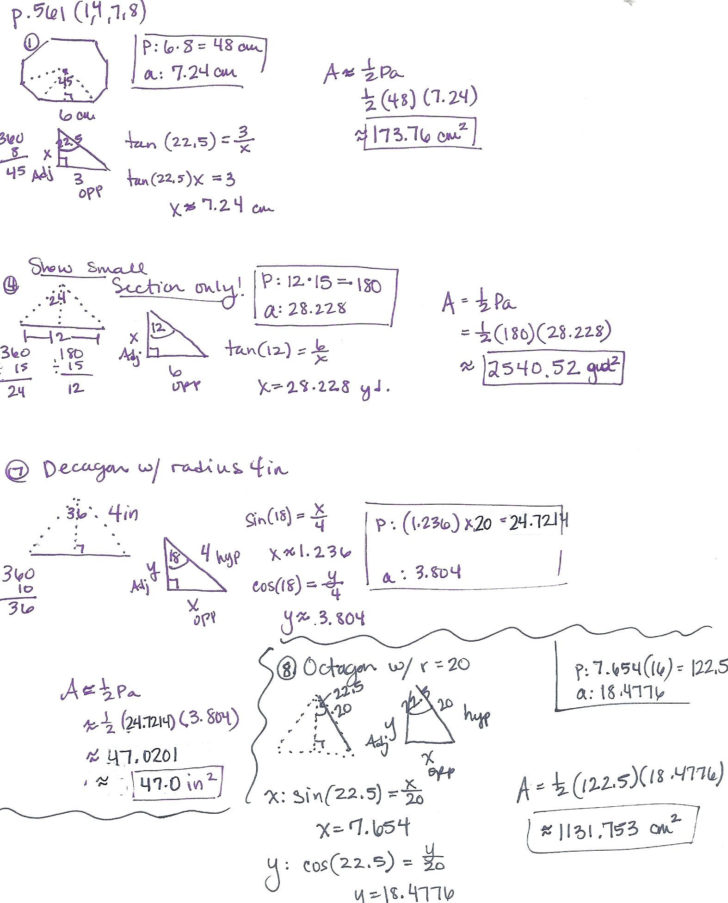 p.561 (1,4,7,8)
①
P: 6·8 = 48 cm
a: 7.24 cm
45
6 cm
A ≈ ½Pa
½(48)(7.24)
≈ 173.76 cm²
360
8
45
22.5
x
Adj
3
opp
tan(22.5) = 3/x
tan(22.5)x = 3
x ≈ 7.24 cm
④
Show small
Section only!
24
12
360
÷ 15
24
180
÷ 15
12
12
x
Adj
6
opp
P: 12·15 = 180
a: 28.228
tan(12) = 6/x
x = 28.228 yd.
A = ½Pa
= ½(180)(28.228)
≈ 2540.52 yd²
⑦ Decagon w/ radius 4in
36
4in
360
10
36
18
y
Adj
4 hyp
x
opp
sin(18) = x/4
x ≈ 1.236
cos(18) = y/4
y ≈ 3.804
P: (1.236) x 20 = 24.7214
a: 3.804
A ≈ ½Pa
≈ ½(24.7214)(3.804)
≈ 47.0201
≈ 47.0 in²
⑧ Octagon w/ r = 20
22.5
20
22.5
y
Adj
20
hyp
x
opp
P: 7.654(16) = 122.5
a: 18.4776
x: sin(22.5) = x/20
x = 7.654
y: cos(22.5) = y/20
y = 18.4776
A = ½(122.5)(18.4776)
≈ 1131.753 cm²